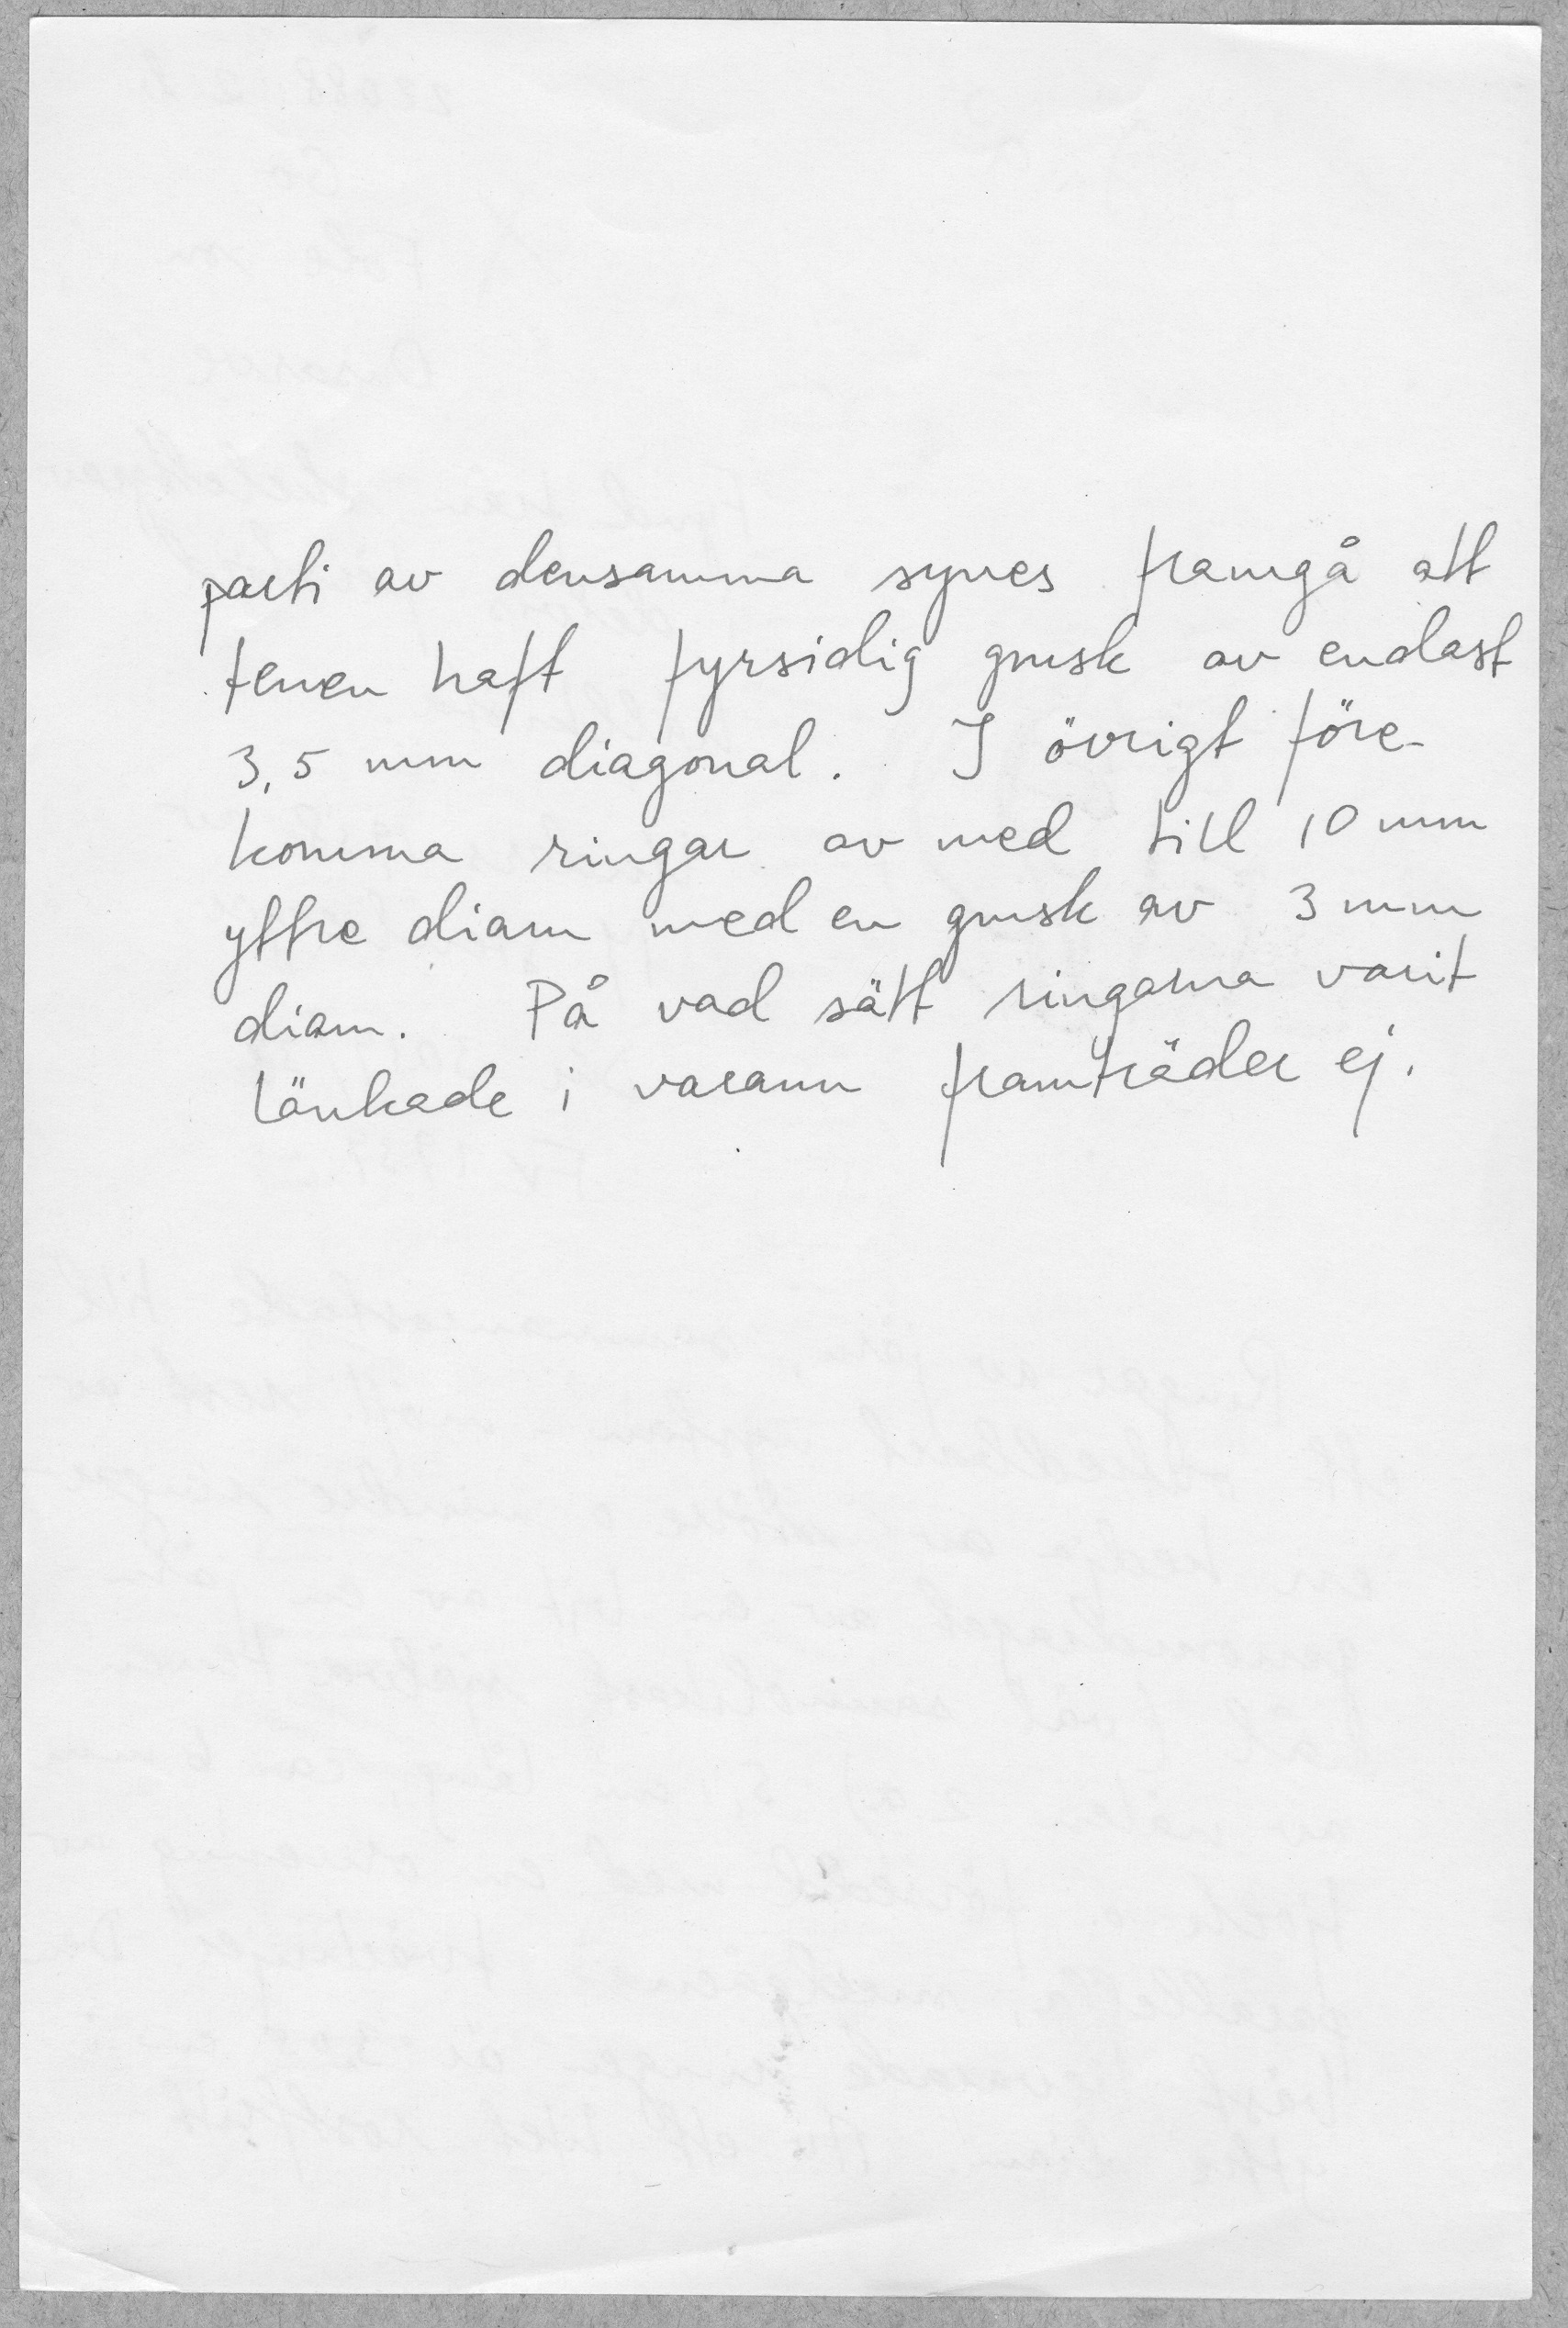 parti av densamma synes framgå att
tenen haft fyrsidig gmsk av endast
3,5 mm diagonal. I övrigt före-
komma ringar av med till 10 mm
yttre diam med en gmsk av 3 mm
diam. På vad sätt ringarna varit
länkade i varann framträder ej.